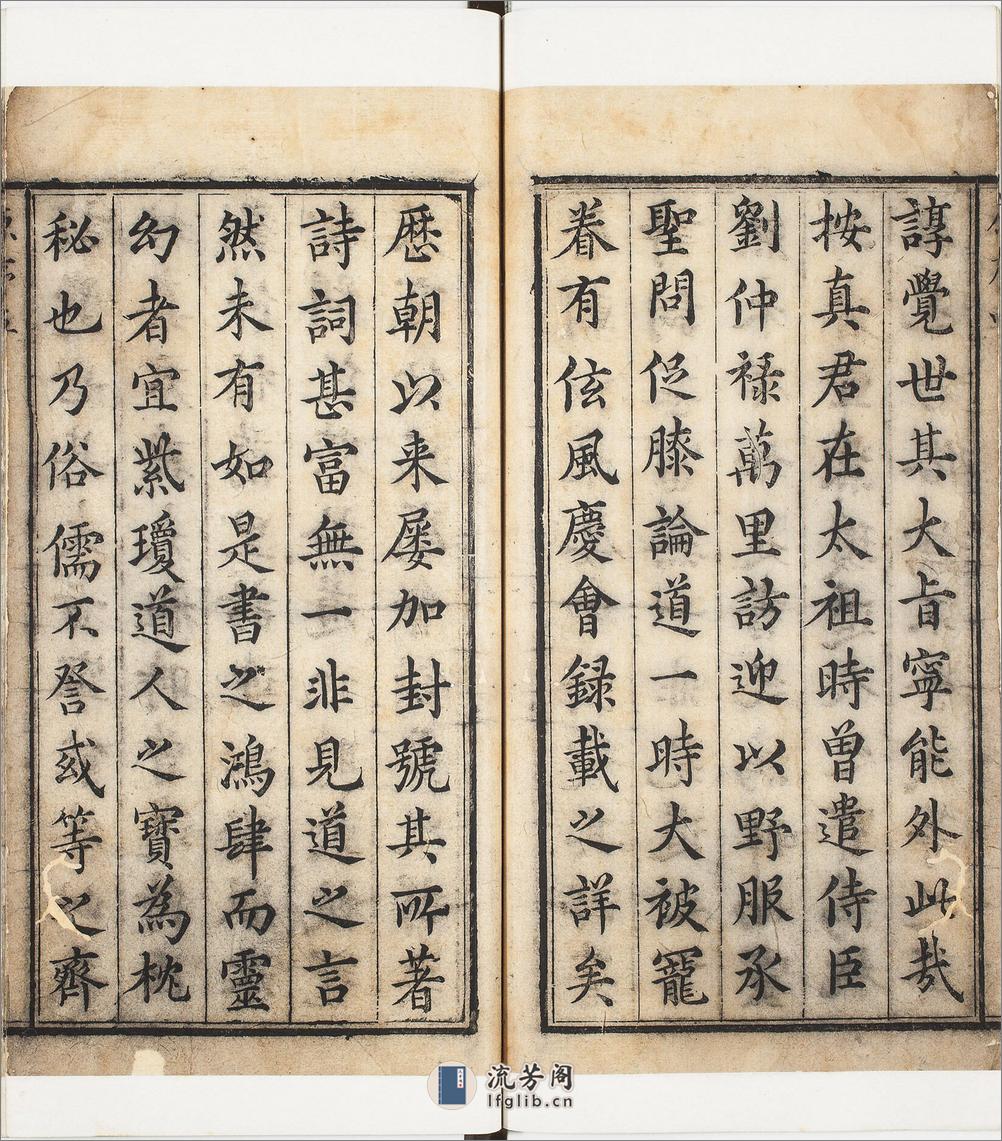 諄覺世其大旨寧能外此㢤
按真君在太祖時曾遣侍臣
劉仲禄萬里訪迎以野服承
聖問促膝論道一時大被寵
眷有佉風慶會録載之詳矣
歷朝以来屢加封號其所著
詩詞甚富無一非見道之言
然未有如是書之鴻肆而靈
幻者宜紫瓊道人之寶為枕
秘也乃俗儒不詧或等之齊
流芳阁
lfglib.cn